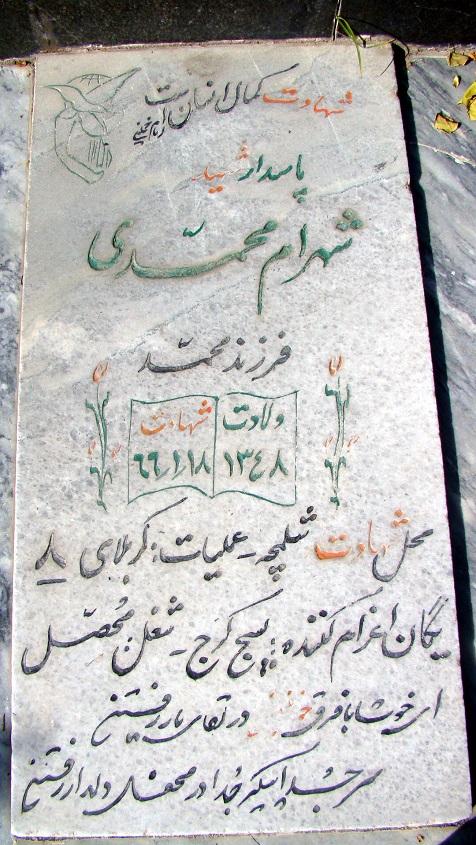 شهادت کمال انسان است
امام خمینی
پاسدار شهید
شهرام محمّدی
فرزند محمّد
ولادت شهادت
۱۳۴۸ ۶۶/۱/۱۸
محل شهادت شلمچه - عملیات: کربلای ۸
یگان اعزام کننده: بسیج کرج - شغل: مُحصّل
ای خوشا با فرق خونین در لقای یار رفتن
سر جُدا پیکر جُدا در محفل دلدار رفتن